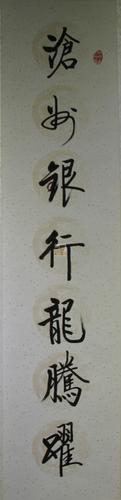 滄州銀行龍騰躍